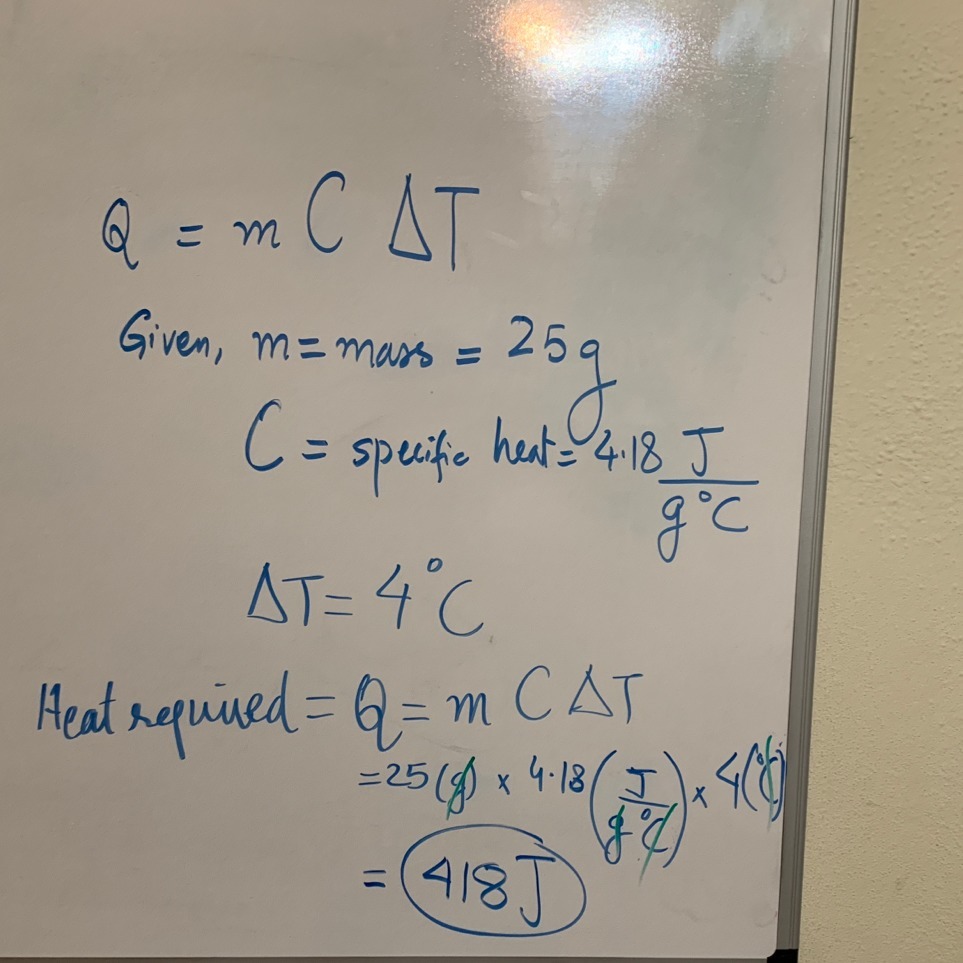 Q = m C ΔT
Given, m = mass = 25g
C = specific heat = 4.18 J/g°C
ΔT = 4°C
Heat required = Q = m C ΔT
= 25 (g) × 4.18 (J/g°C) × 4(°C)
= 418 J